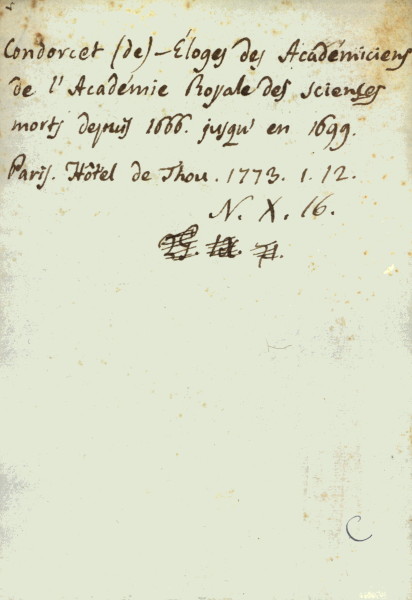 Condorcet (de) - Éloges des Académiciens
de l'Académie Royale des scienses
morts depuis 1666. jusqu'en 1699.
Paris. Hôtel de Thou. 1773. 1. 12.
N. X. 16.
C